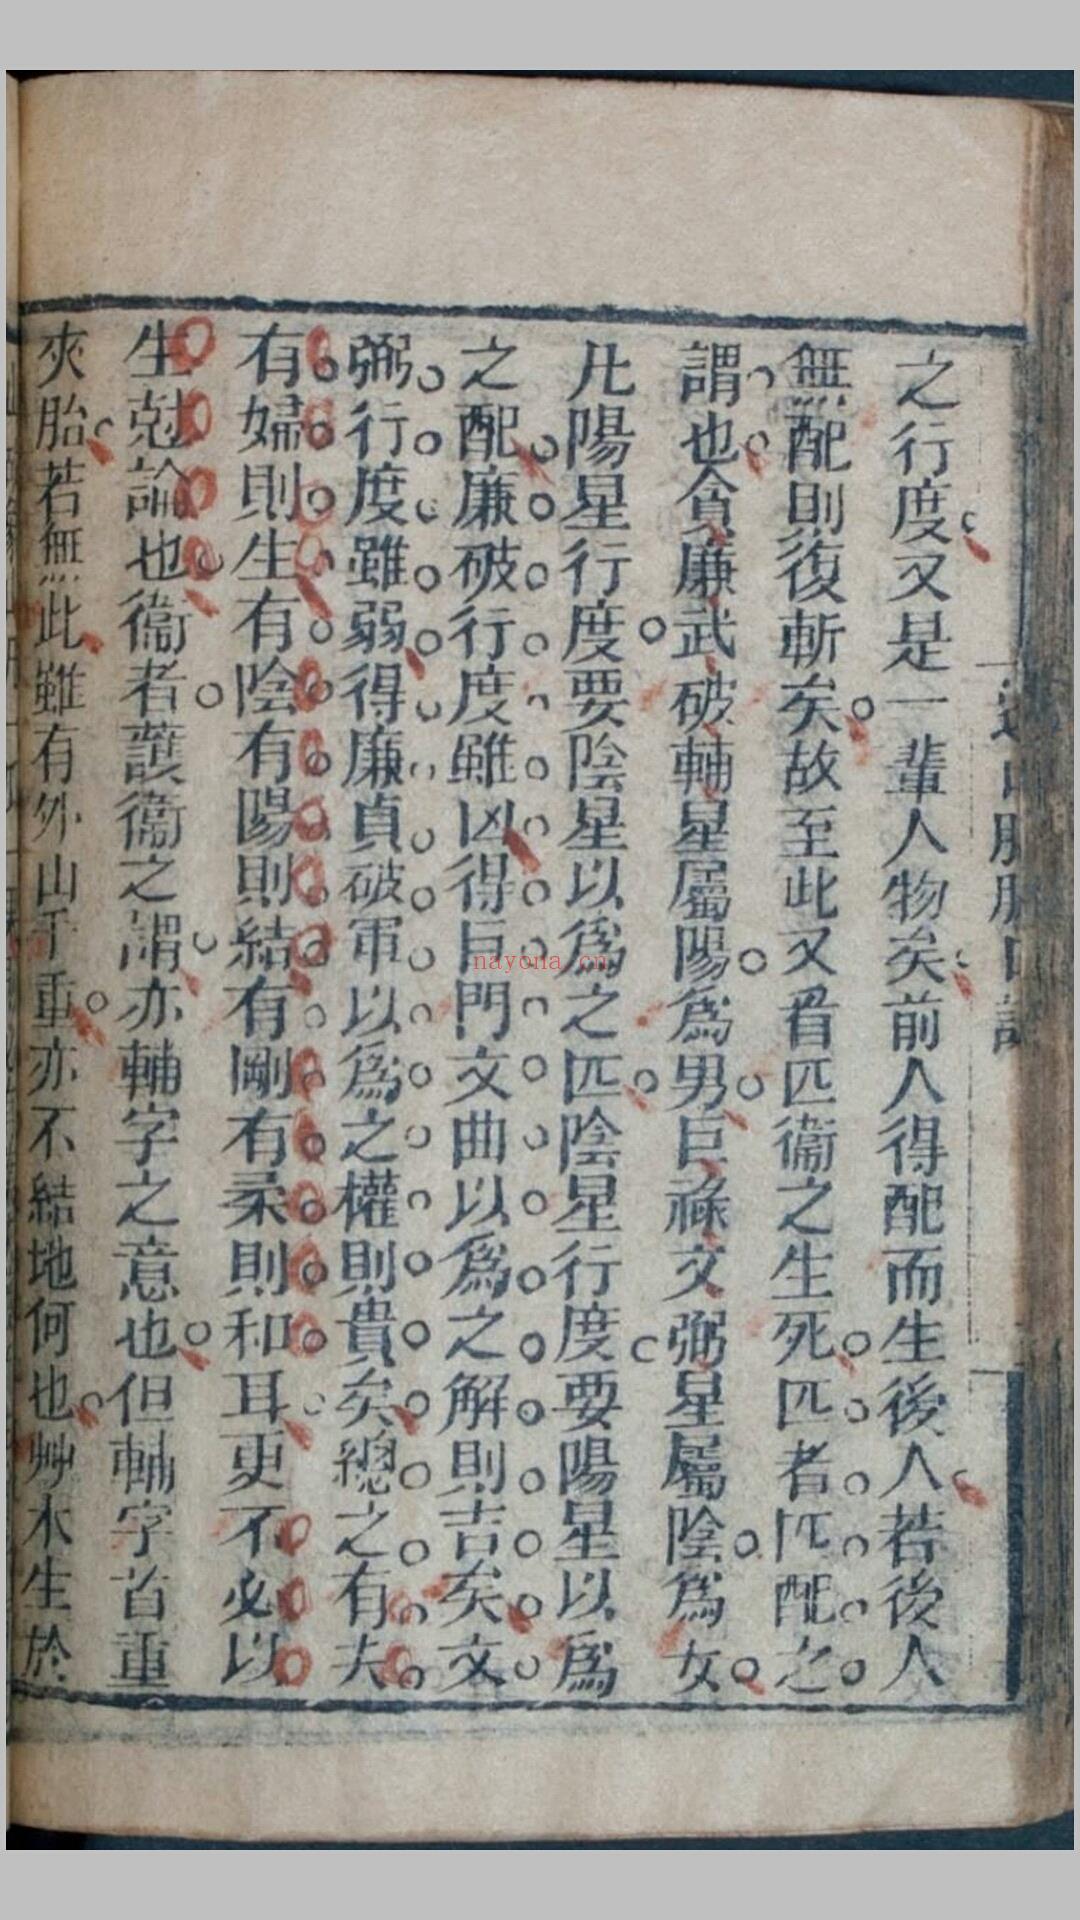 之行度又是一輩人物矣前人得配而生後人若後人
無配則復斬矣故至此又看匹衞之生死匹者匹配之
謂也貪廉武破輔星屬陽爲男巨祿文弼星屬陰爲女
凡陽星行度要陰星以爲之匹陰星行度要陽星以爲
之配廉破行度雖凶得巨門文曲以爲之解則吉矣文
弼行度雖弱得廉貞破軍以爲之權則貴矣總之有夫
有婦則生有陰有陽則結有剛有柔則和耳更不必以
生尅論也衞者護衞之謂亦輔字之意也但輔字首重
夾胎若無此雖有外山千重亦不結地何也艸木生於
nayona.cn